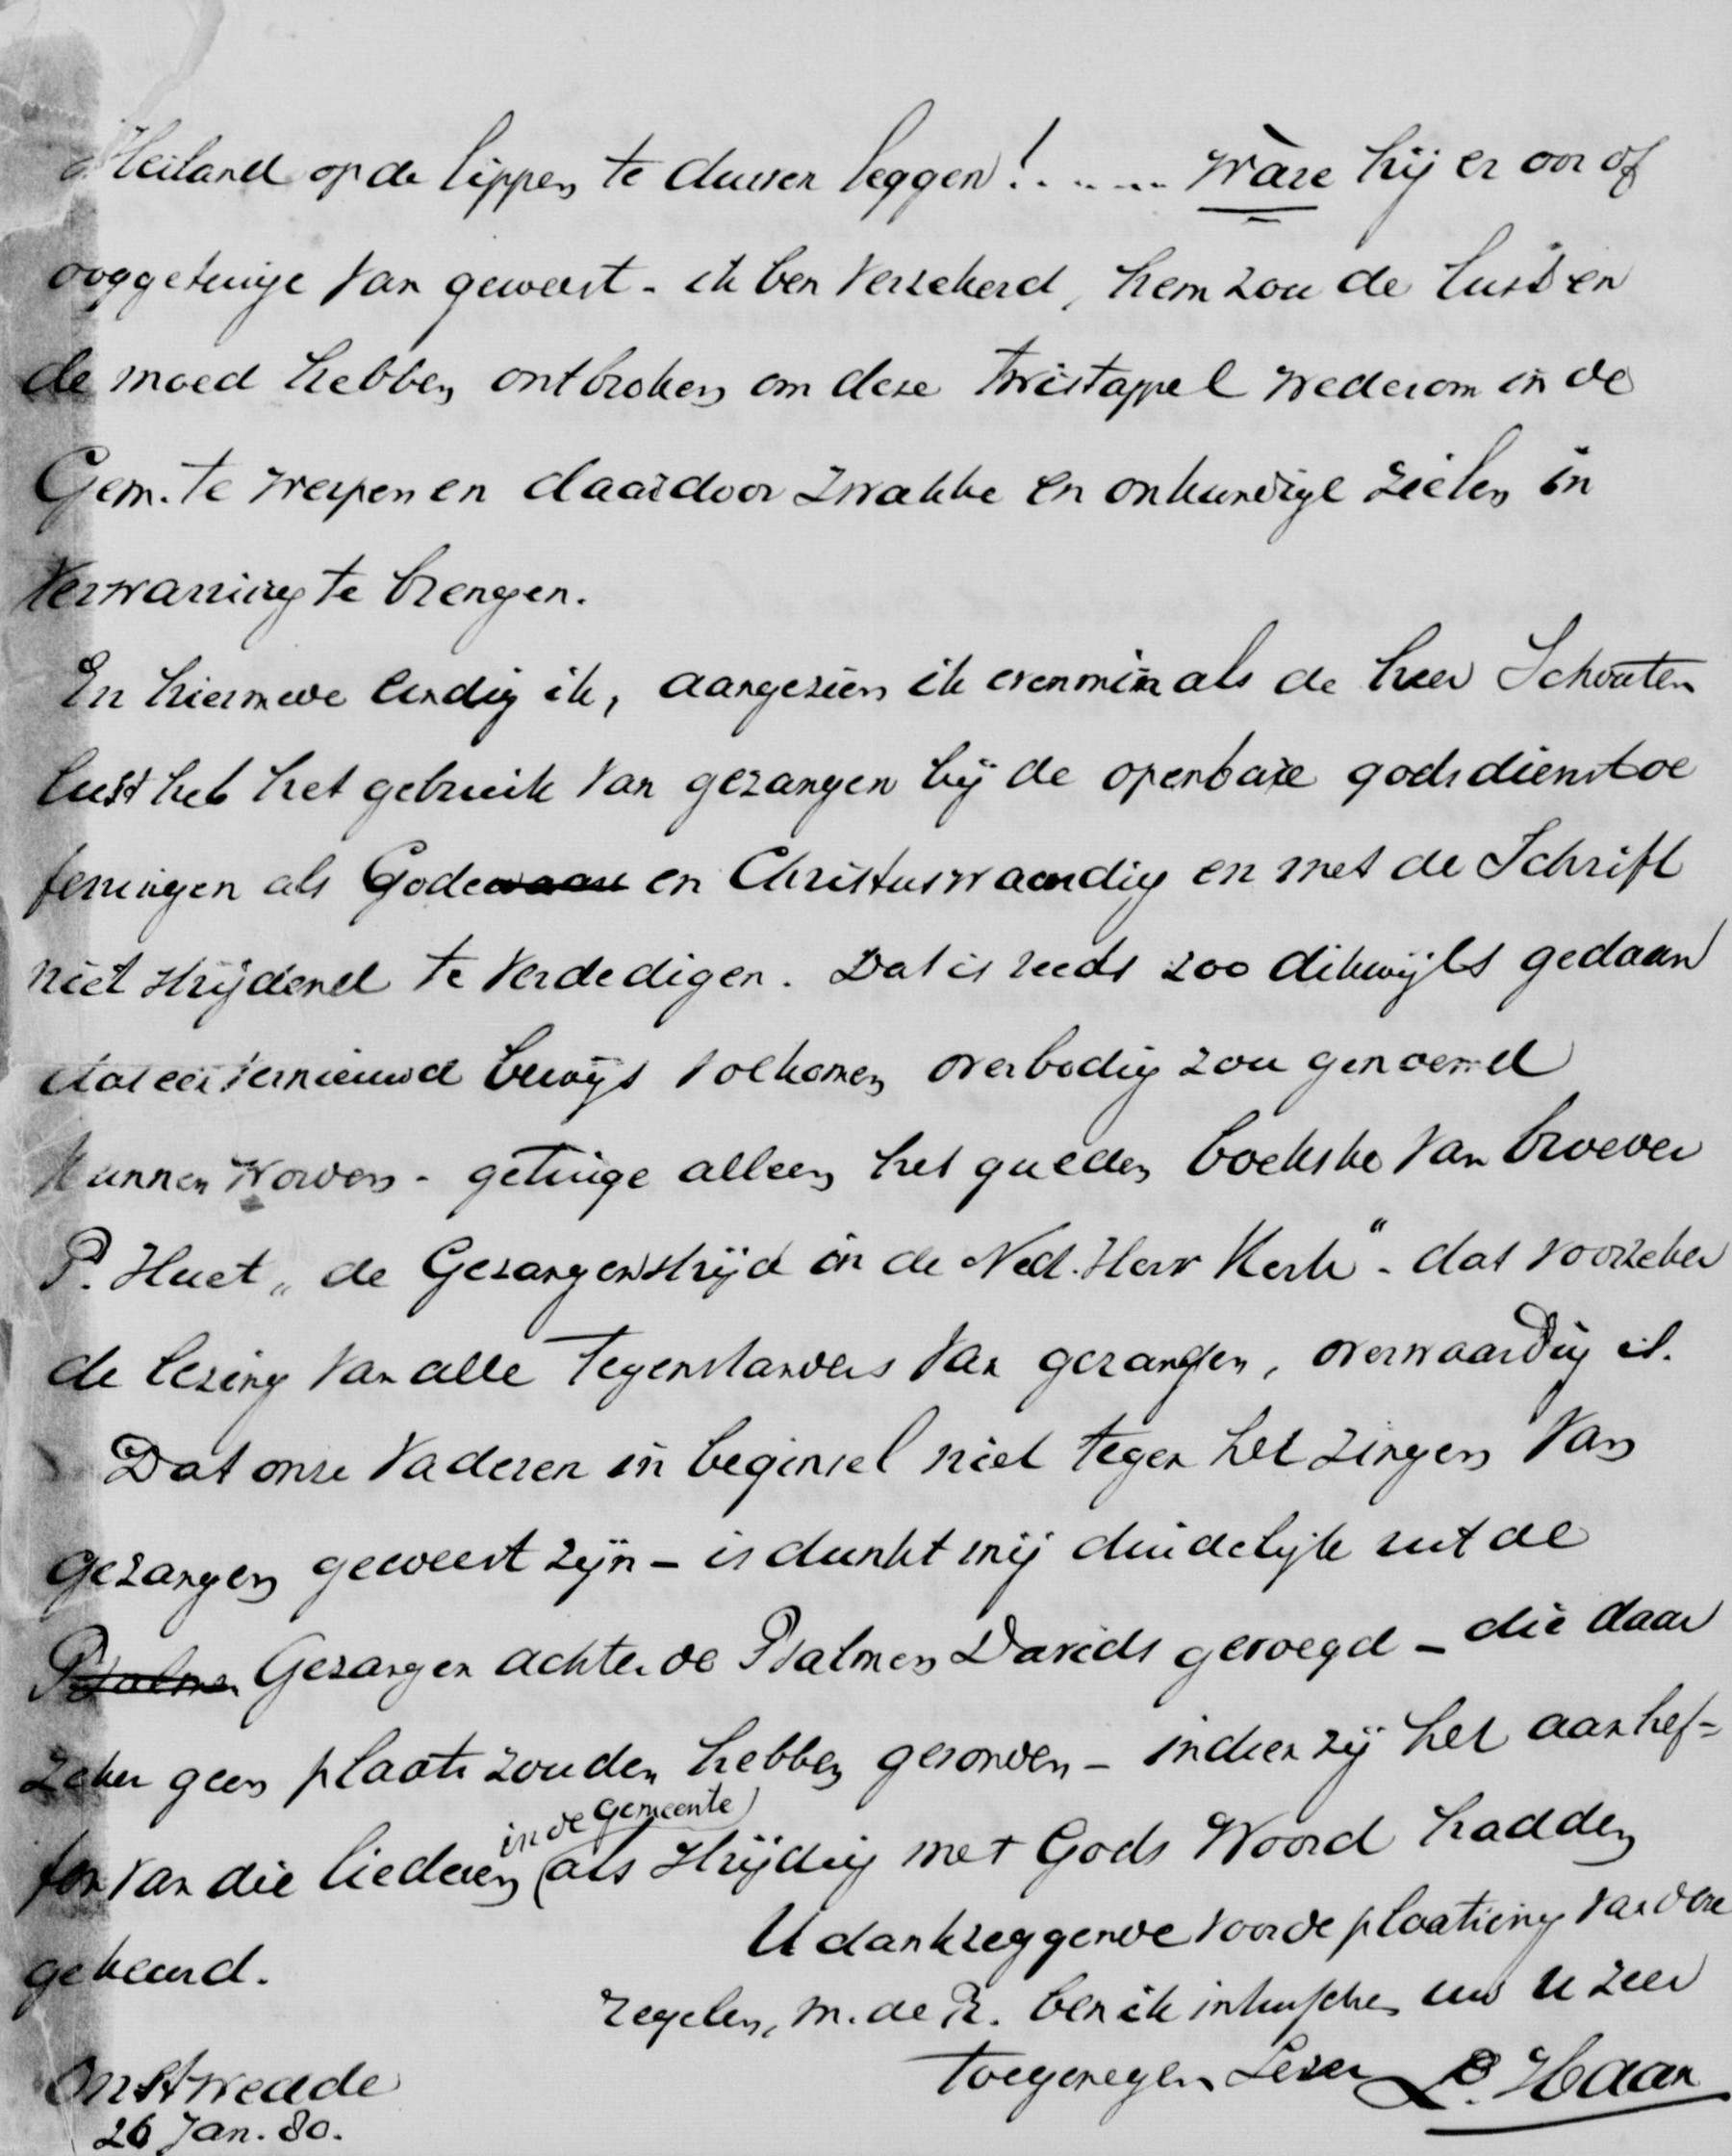 Heiland op de lippen te durven leggen!...... Ware hij er oor of
ooggetuige van geweest - ik ben verzekerd, hem zou de lust en
de moed hebben ontbroken om deze twistappel wederom in de
Gem. te werpen en daardoor zwakke en onkundige zielen in
verwarring te brengen.
En hiermede eindig ik, aangezien ik evenmin als de heer Schouten
lust heb het gebruik van gezangen bij de openbare godsdienstoe
feningen als Gode en Christuswaardig en met de Schrift
niet strijdend te verdedigen. Dat is reeds zoo dikwijls gedaan
dat een vernieuwd bewijs volkomen overbodig zou genoemd
kunnen worden - getuige alleen het gulden boekske van broeder
P. Huet „de Gezangenstrijd in de Ned. Herv Kerk" - dat voorzeker
de lezing van alle tegenstanders van gezangen, overwaardig is.
Dat onze Vaderen in beginsel niet tegen het zingen van
gezangen geweest zijn - is dunkt mij duidelijk uit de
Psalmen Gezangen achter de Psalmen Davids gevoegd - die daar
zeker geen plaats zouden hebben gevonden - indien zij het aanhef-
fen van die liederen in de gemeente als strijdig met Gods Woord hadden
gekeurd.
U dankzeggende voor de plaatsing van deze
regelen, M. de R. ben ik intusschen uw U zeer
toegenegen Lezer P. Haan
Onstwedde
26 Jan. 80.